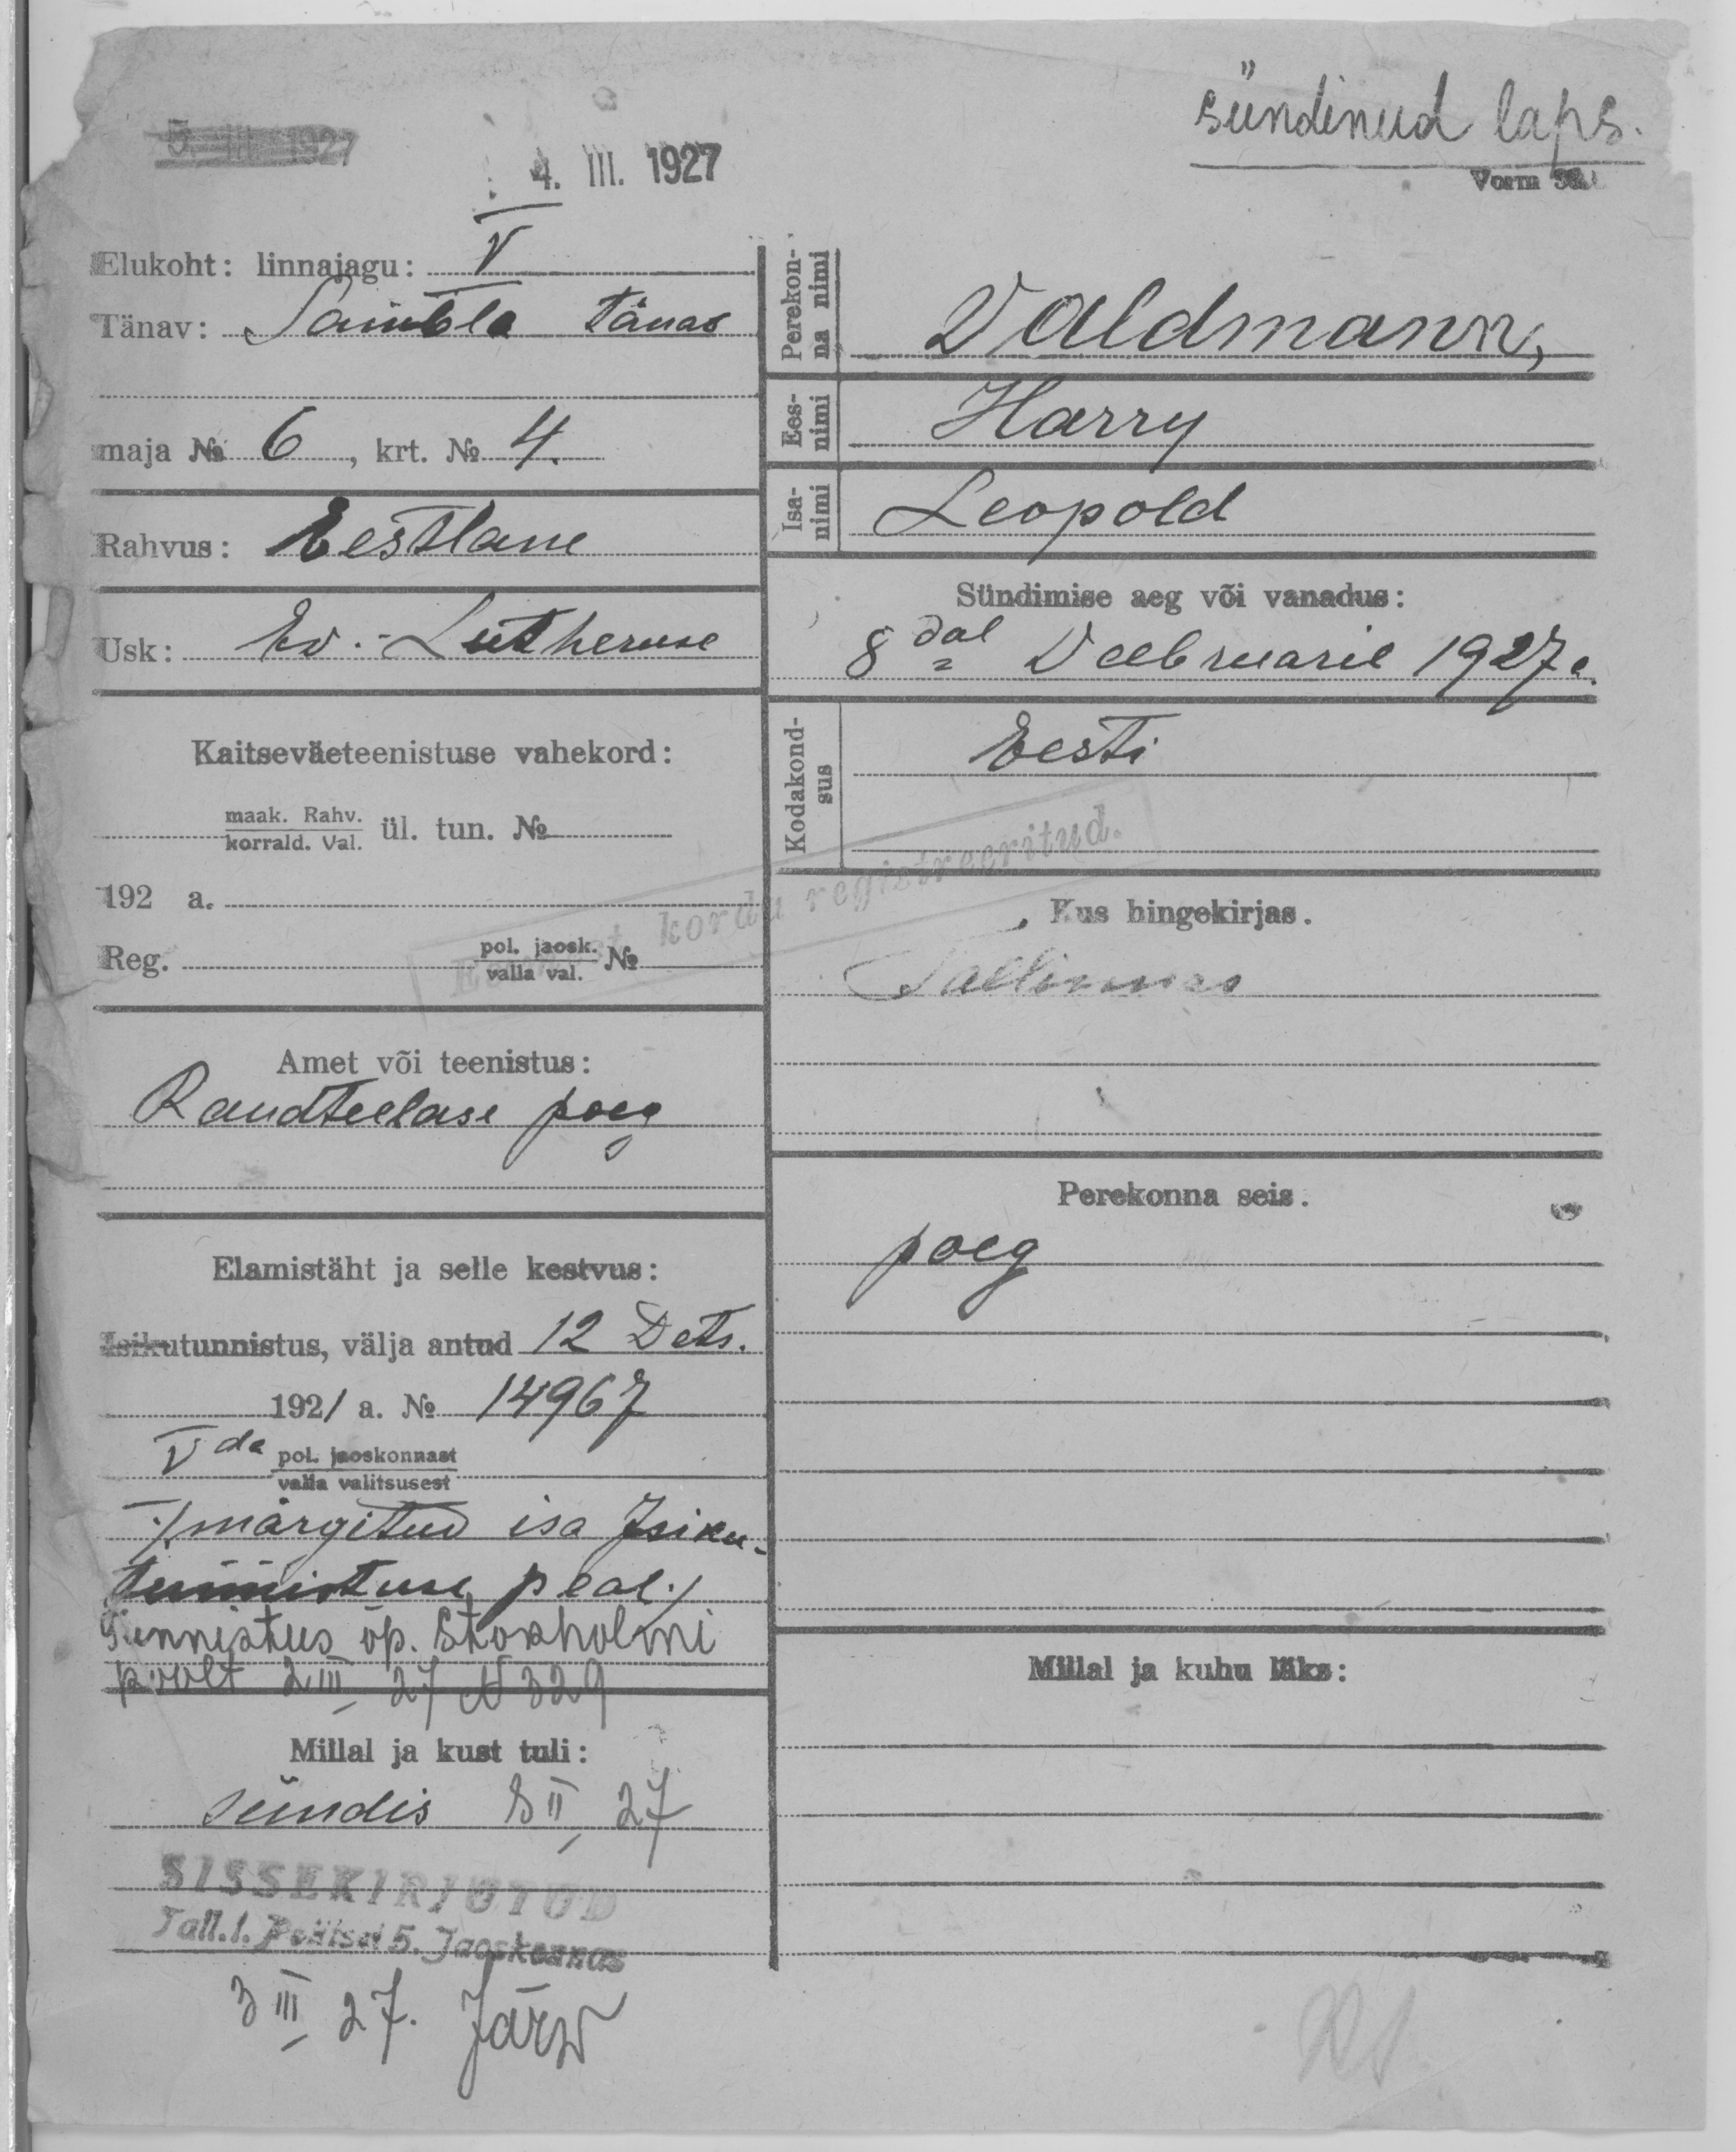 sündinud laps.
5. III 1927
4. III. 1927
Vorm
Elukoht: linnajagu: V
Tänav: tänav
maja № 6, krt. № 4.
Rahvus: Eestlane
Usk: Ev.-Lutheruse
Kaitseväeteenistuse vahekord:
maak. Rahv.
korrald. Val. ül. tun. №
192 a.
Reg. pol. jaosk.
valla val. №
Amet või teenistus:
Raudteelase poeg
Elamistäht ja selle kestvus:
Isikutunnistus, välja antud 12 Dets.
1921 a. № 14967
Vda pol. jaoskonnast
valla valitsusest
/märgitud isa Isiku-
tunnistuse peal./
Tunnistus õp. Stokholmi
poolt 2 III 27 N 329
Millal ja kust tuli:
sündis 8 II 27
SISSEKIRJUTUD
Tall. l. Politsei 5. Jaoskonnas
3 III 27. Järw
Perekon-
na nimi
Valdmann,
Ees-
nimi
Harry
Isa-
nimi
Leopold
Sündimise aeg või vanadus:
8dal Veebruaril 1927 a.
Kodakond-
sus
Eesti
Esimest kordu registreeritud.
Kus hingekirjas.
Tallinnas
Perekonna seis.
poeg
Millal ja kuhu läks: